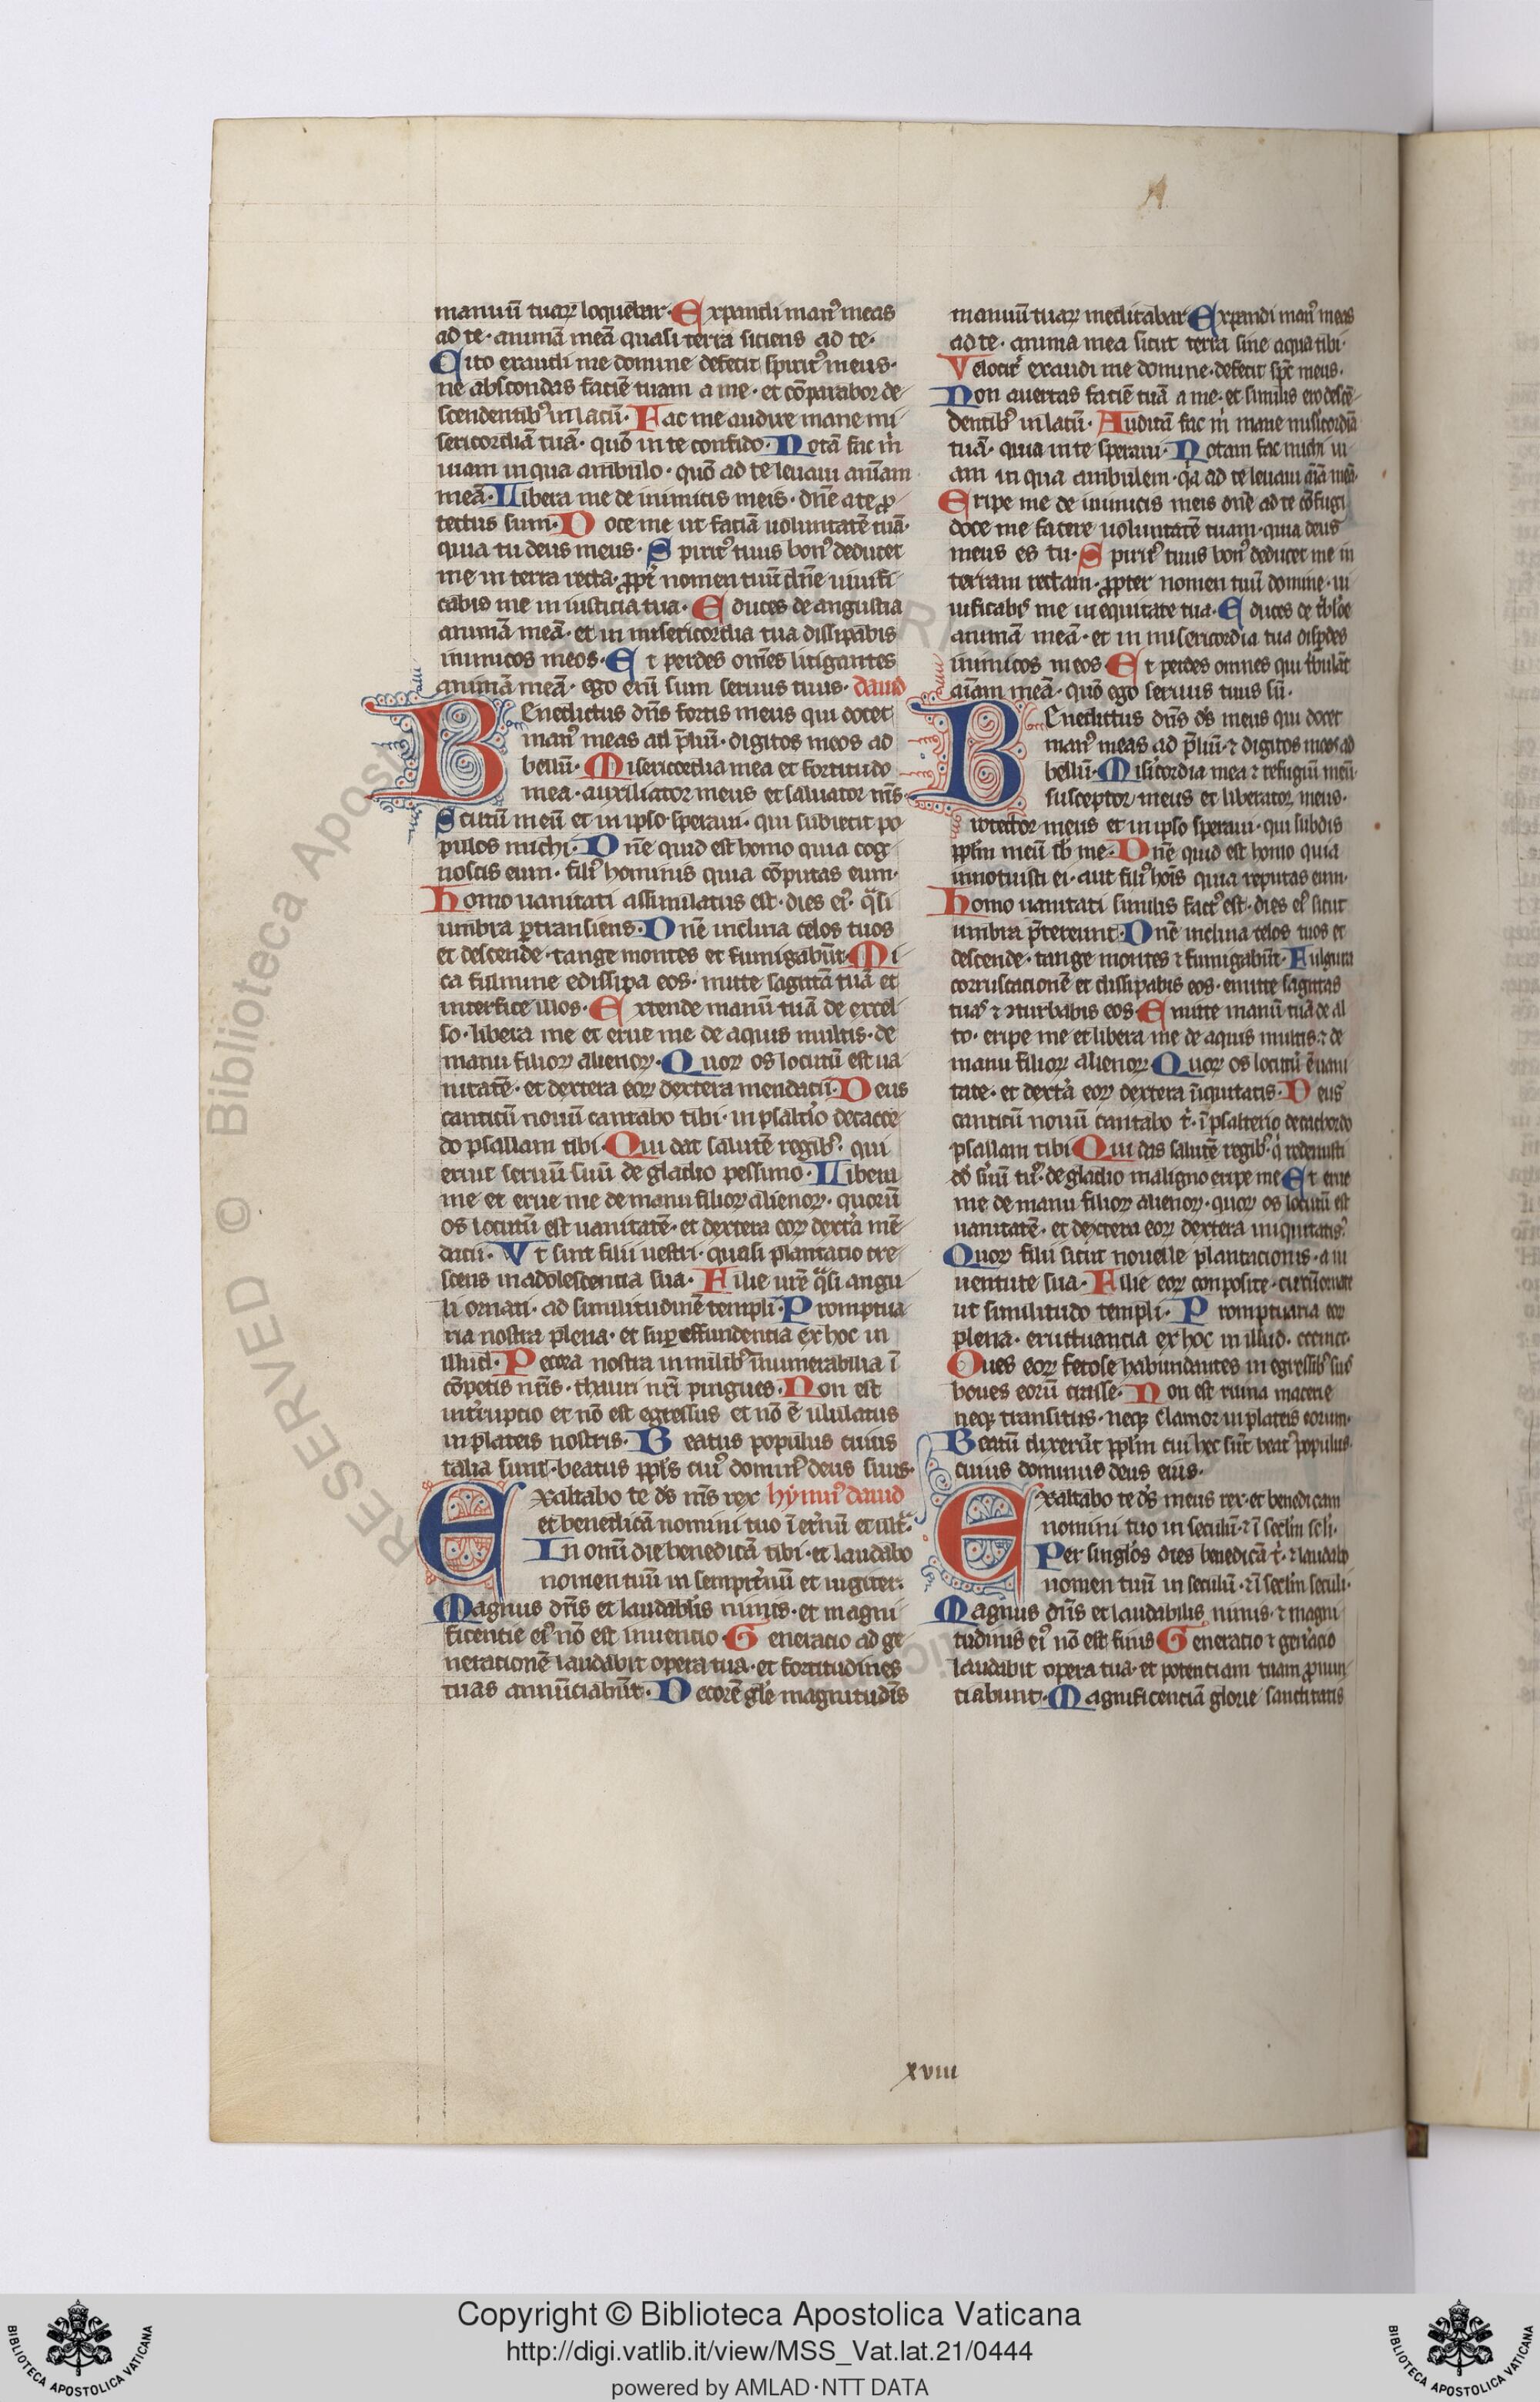 manuū tuaꝝ loquebar· Expandi manꝰ meas
ad te· animā meā quasi terra sitiens ad te·
Cito exaudi me domine defecit spiritꝰ meus·
ne abscondas faciē tuam a me· et cōparabor de
scendentibꝰ in lacū· Fac me audire mane mi
sericordiā tuā· quō in te confido· Notā fac m̄
uiam in qua ambulo· quō ad te leuaui aniam
meā· Libera me de inimicis meis· dn̄e a te ꝓ
tectus sum· Doce me ut faciā uoluntatē tuā·
quia tu deus meus· Spiritꝰ tuus bonꝰ deducet
me in terra recta· ꝓpt̄ nomen tuū dn̄e uiuifi
cabis me in iusticia tua· Educes de angustia
animā meā· et in misericordia tua dissipabis
inimicos meos· Et perdes om̄es ligantes
animā meā· ego eni sum seruus tuus· dauid
Benedictus dn̄s fortis meus qui docet
manꝰ meas ad p̄liū· digitos meos ad
bellū· Misericordia mea et fortitudo
mea· auxiliator meus et saluator m̄s
Scutū meū et in ipso speraui· qui subiecit po
pulos michi· Dn̄e quid est homo quia cog
noscis eum· filiꝰ hominis quia cōputas eum·
Homo uanitati assimilatus est· dies eiꝰ q̄si
umbra ꝑtransiens· Dn̄e inclina celos tuos
et descende· tange montes et fumigabūt· Mi
ca fulmine et dissipa eos· mitte sagittā tuā et
interfice illos· Extende manū tuā de excel
so· libera me et erue me de aquis multis· de
manu filioꝝ alienoꝝ· Quoꝝ os locutū est ua
nitatē· et dextera eoꝝ dextera mendacii· Deus
canticū nouū cantabo tibi· in psalt̄io decacor
do psallam tibi· Qui dat salutē regibꝰ· qui
eruit seruū suū de gladio pessimo· Libera
me et erue me de manu filioꝝ alienoꝝ· quorū
os locutū est uanitatē· et dextera eoꝝ dext̄a mē
dacii· Vt sint filii nostri· quasi plantatio cre
scens in adolescentia sua· Filie nr̄e q̄si angu
li ornati· ad similitudinē templi· Promptua
ria nostra plena· et suꝑ effundentia ex hoc in
illud· Pecora nostra in milibꝰ īnumerabilia ī
cōpetis nr̄is· thauri nr̄i pingues· Non est
int̄ruptio et nō est egressus et nō ē ululatus
in plateis nostris· Beatus populus cuius
talia sunt· beatus ppl̄s cuiꝰ dominꝰ deus suus·
Exaltabo te ds̄ m̄s rex hymnꝰ dauid
et benedicā nomini tuo ī et̄nū et ult̄·
In omi die benedicā tibi· et laudabo
nomen tuū in sempit̄nū et iugiter·
Magnus dn̄s et laudabl̄is nimis· et magni
ficentie eiꝰ nō est inuentio· Generacio ad ge
nerationē laudabit opera tua· et fortitudines
tuas annūciabūt· Decorē gl̄e magnitudīs
manuū tuaꝝ meditabar Expandi manꝰ meas
ad te· anima mea sicut terra sine aqua tibi·
Velocit̄ exaudi me domine· defecit sp̄c meus·
Non auertas faciē tuā a me· et similis ero descē
dentibꝰ in lacū· Auditā fac m̄ mane mis̄icordiā
tuā· quia in te speraui· Notam fac michi ui
am in qua ambulem· q̄a ad te leuaui aīā meā·
Eripe me de inimicis meis dn̄e ad te cōfugi
doce me facere uoluntatē tuam· quia deus
meus es tu· Spiritꝰ tuus bonꝰ deducet me in
terram rectam· ꝓpter nomen tuū domine· ui
uificabis me in equitate tua· Educes de t̄bl̄oe
animā meā· et in misericordia tua disꝑdes
inimicos meos· Et perdes omnes qui tribulāt
aīam meā· quō ego seruus tuus sū·
Benedictus dn̄s ds̄ meus qui docet
manꝰ meas ad p̄liū· ⁊ digitos meos ad
bellū· Mis̄icordia mea ⁊ refugiū meū·
susceptor meus et liberator meus·
rotector meus et in ipso speraui· qui subdis
ppl̄m meū sb̄ me· Dn̄e quid est homo quia
innotuisti ei· aut filiꝰ hōis quia reputas eum·
Homo uanitati similis factꝰ est· dies eiꝰ sicut
umbra p̄tereunt· Dn̄e inclina celos tuos et
descende· tange montes ⁊ fumigabūt· Fulgura
corruscationē et dissipabis eos· emitte sagittas
tuas ⁊ ꝯturbabis eos· Emitte manū tuā de al
to· eripe me et libera me de aquis multis· ⁊ de
manu filioꝝ alienoꝝ· Quoꝝ os locutū ē uani
tate· et dext̄a eoꝝ dextera īiquitatis· Deus
canticū nouū cantabo t̄· ī psalterio decachordo
psallam tibi· Qui das salutē regibꝰ· q̄ redemisti
dd̄ s̄uū tuū· de gladio maligno eripe me· Et erue
me de manu filioꝝ alienoꝝ· quoꝝ os locutū est
uanitatē· et dextera eoꝝ dextera iniquitatis·
Quoꝝ filii sicut nouelle plantacionis· a iu
uentute sua· Filie eoꝝ composite· circūornate
ut similitudo templi· Promptuaria eoꝝ
plena· eructuantia ex hoc in illud·
Oues eoꝝ fetose habundantes in egressibꝰ suis
boues eorū crasse· Non est ruina macerie
neqꝫ transitus· neqꝫ clamor in plateis eorum·
Beatū dixerūt ppl̄m cui hec sūt beatꝰ populus
cuius dominus deus eius·
Exaltabo te ds̄ meus rex· et benedicam
nomini tuo in seculū· ⁊ ī secl̄m scl̄i·
Per singl̄os dies benedicā t̄· ⁊ laudabo
nomen tuū in seculū· ⁊ ī secl̄m seculi·
Magnus dn̄s et laudabilis nimis· ⁊ magni
tudinis eiꝰ nō est finis· Generatio ⁊ gen̄acio
laudabit opera tua· et potentiam tuam ꝓnun
tiabunt· Magnificenciā glorie sanctitatis
xviii
RESERVED © Biblioteca Apostolica
Copyright © Biblioteca Apostolica Vaticana
http://digi.vatlib.it/view/MSS_Vat.lat.21/0444
powered by AMLAD·NTT DATA
BIBLIOTECA APOSTOLICA VATICANA
BIBLIOTECA APOSTOLICA VATICANA